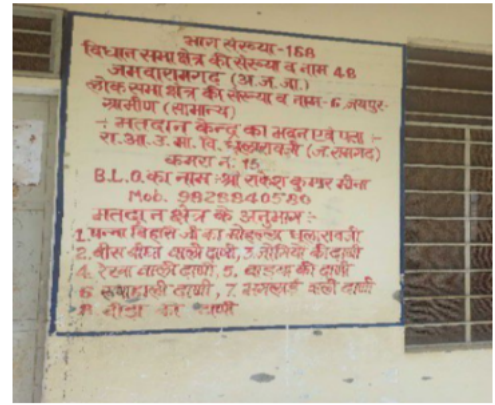 भाग संख्या-158
विधान सभा क्षेत्र की संख्या व नाम 48
जमवारामगढ़ (अ.ज.जा.)
लोक सभा क्षेत्र की संख्या व नाम-6 जयपुर-
ग्रामीण (सामान्य)
÷ मतदान केन्द्र का भवन एवं पता :-
रा.आ.उ.मा.वि. धुलारावजी (ज.रामगढ)
कमरा नं. 15
B.L.O.का नाम :-श्री राकेश कुमार मीना
Mob. 9828840580
मतदान क्षेत्र के अनुभाग :-
1.पन्ना विहास जी का मोहल्ला धुलारावजी
2.बीस बीघा वाली ढाणी, 3.जोगियों की ढाणी
4. रेखा वाली ढाणी, 5. की ढाणी
6 ढाणी, 7. वाली ढाणी
8. का ढाणी